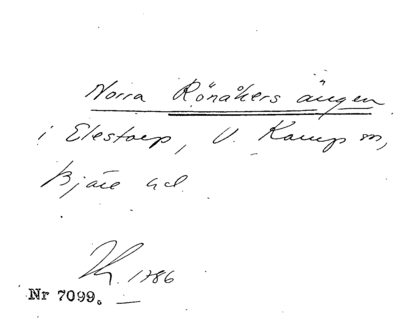 Norra Rönåkers ängen
i Elestorp, V. Karup sn,
Bjäre hd.
1786
Nr 7099.